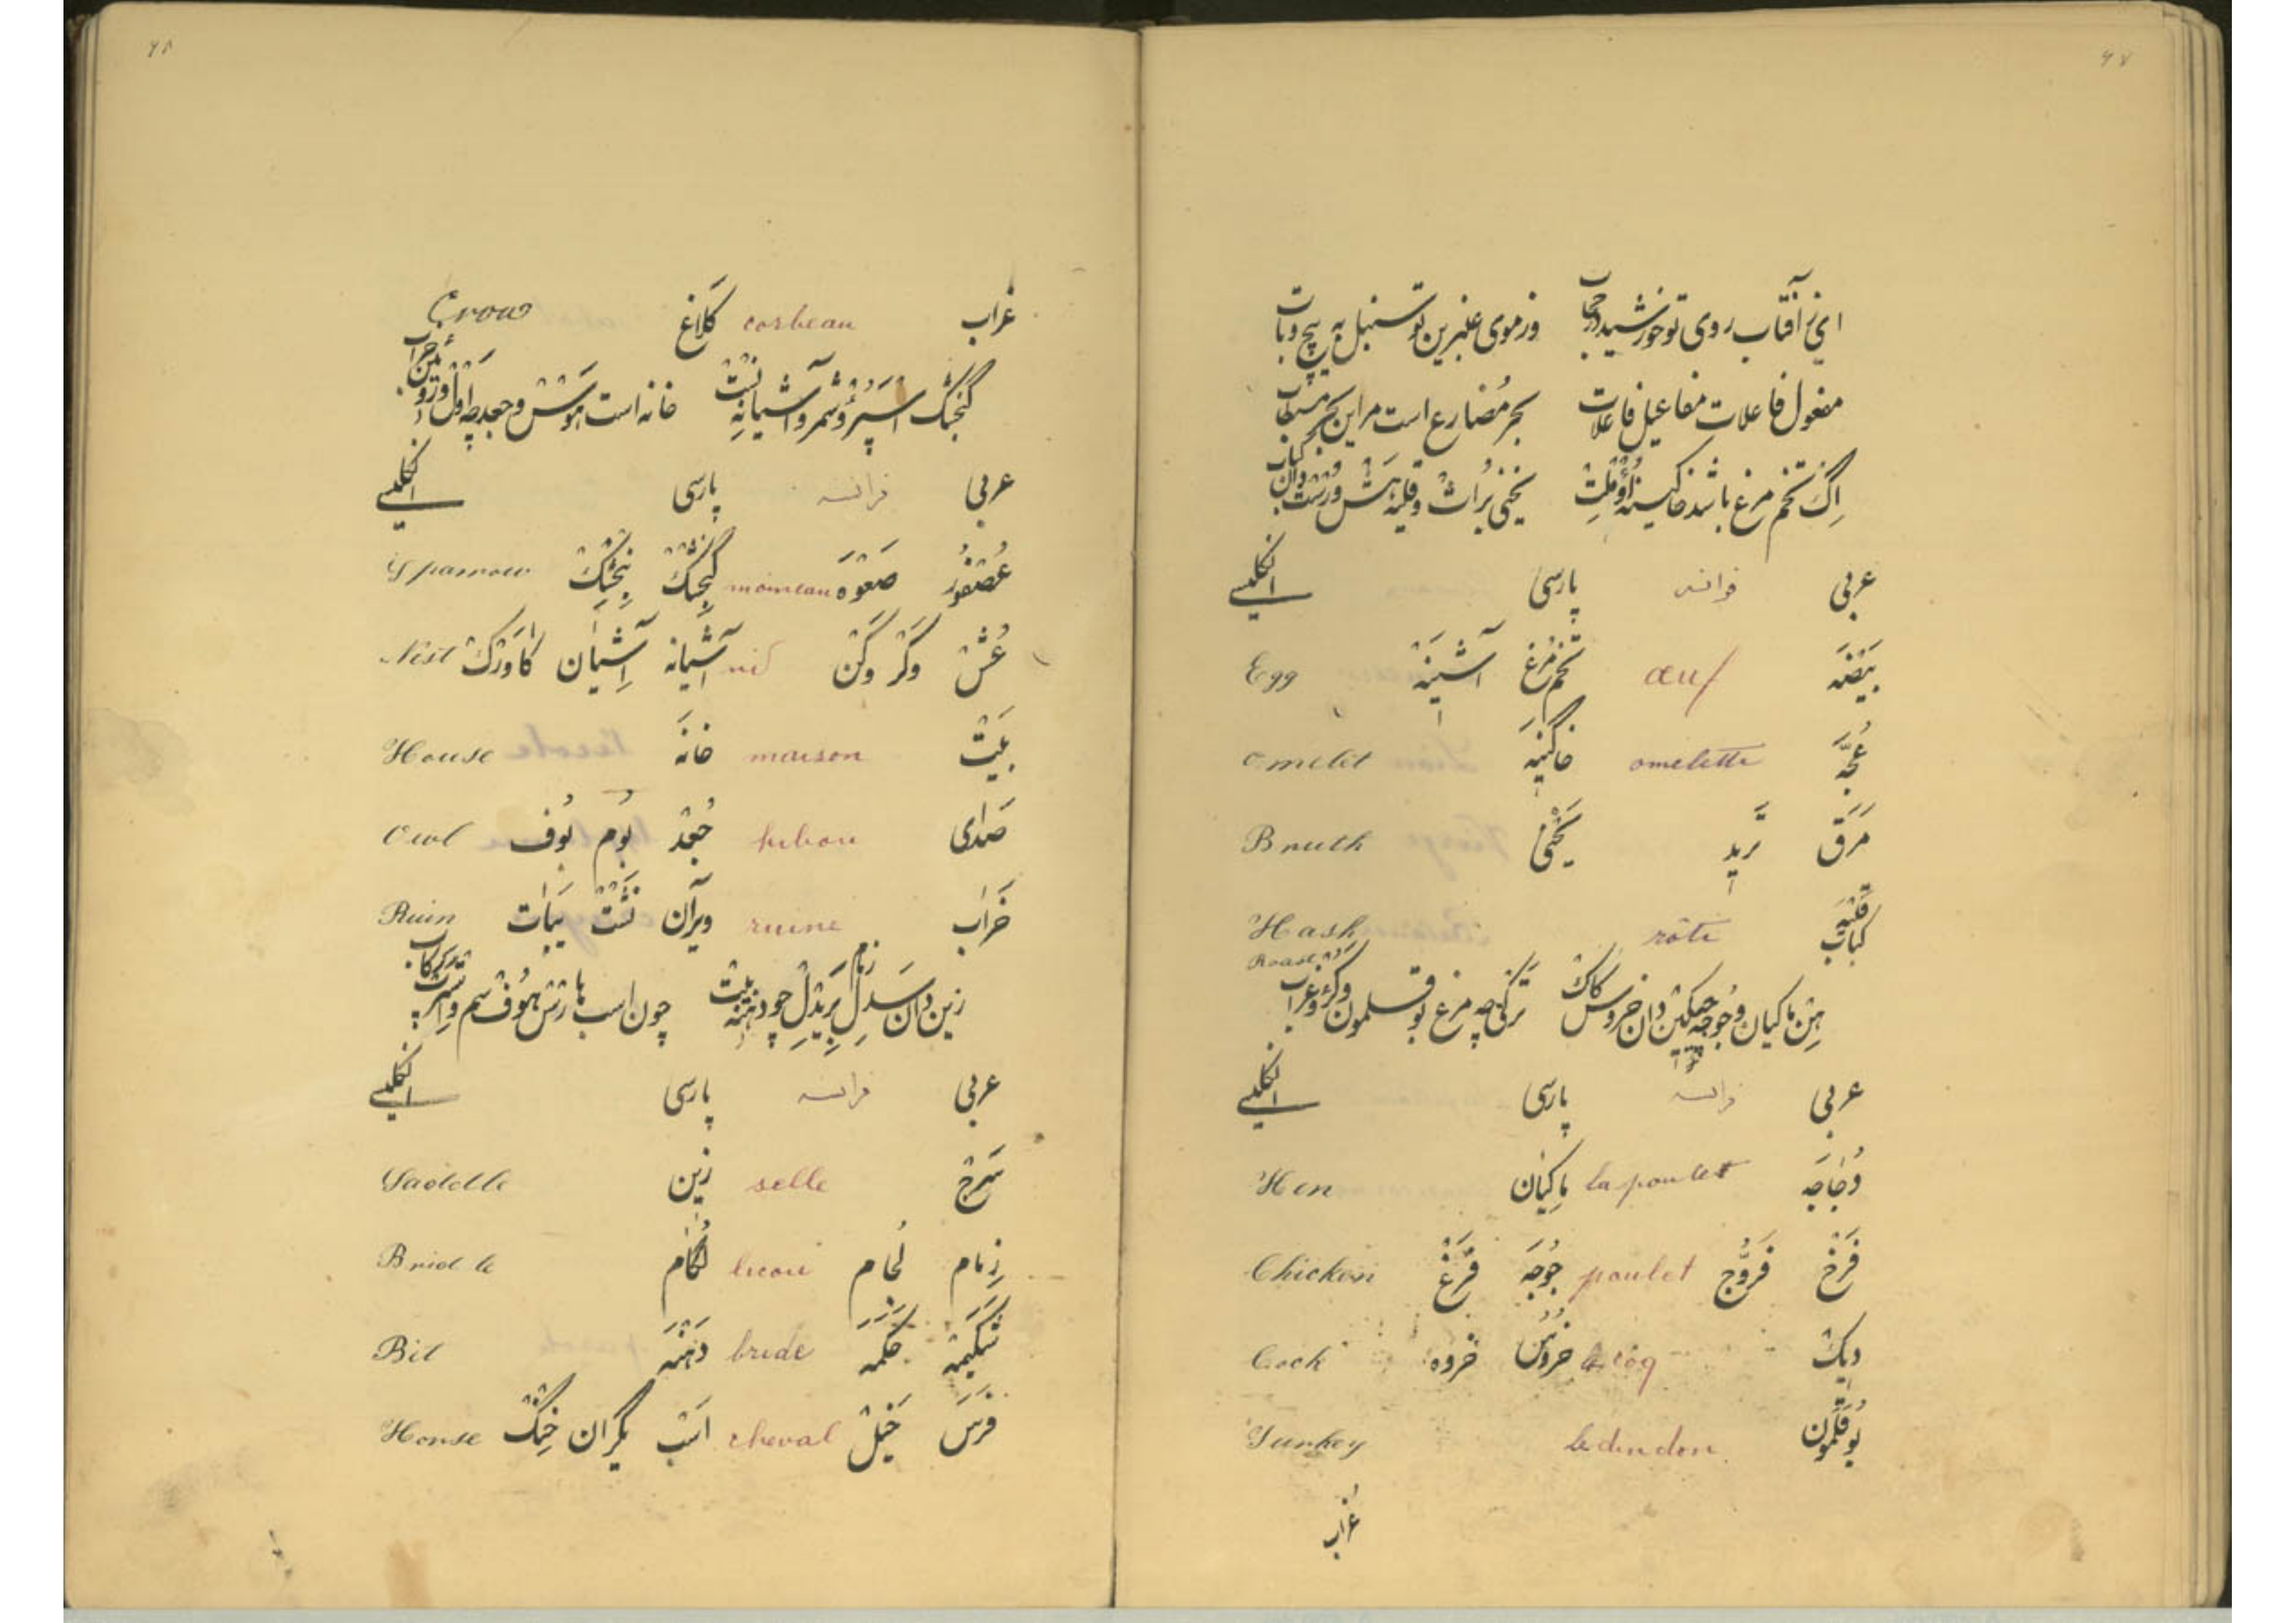 ۴۷
ای ز آفتاب روی تو خورشید در حجاب وز موی عنبرین تو سنبل به پیچ و تاب
مفعول فاعلات مفاعیل فاعلات بحر مُضارع است مر این بحر
اِگ تخم مرغ باشد خاگینه اُوْمْلِتْ یخنی بُراثْ و قلیه هَشْ و رُسْتْ دان کباب
عربی فرانسه پارسی انگلیسی
بَیْضَه œuf تخم مُرغ آشینَهْ Egg
عُجَّه omelette خاگینَه omelet
مَرَق تَرید یَخْنی Bruth
قَلْیَه کَباب rôti Hash Roast
هِنْ ماکیان و جُوجه چیکِین دان خروس کاکْ تَرْکی چه مرغ بوقلمون کرُوْ و غراب
عربی فرانسه پارسی انگلیسی
دُجاجَه la poulet ماکیان Hen
فَرْخ فَرُّوج poulet جُوجَه فَرْغ Chicken
دیک le coq خُرُوسْ خروه Cock
بُوقَلَمُون le dindon Turkey
غُراب
۴۸
غراب corbeau کَلاغ Crow
گنجشک اسپَرُوْ شمر و آشیانه نِسْتْ خانه است هَوْسْ و جغد چه اَوْلْ و رُوئین خراب
عربی فرانسه پارسی انگلیسی
عُصْفُوْر صَعْوَه moineau گُنجِشْکْ Sparrow
عُشْ وَکْر وَکْن nid آشیانه آشیان Nest
بَیْتْ maison خانَه House
صَدای hibou جُغْد بُوم بُوف Owl
خَراب ruine ویران یَبات Ruin
زین دان سَدِلْ بَرِیْدِلْ زمام چو دهنه بیتْ چون اسب هارْسْ هُوْفْ سم و رکاب
عربی فرانسه پارسی انگلیسی
سَرْج selle زین Saddle
زِمام لُجام licou لُگام Bridle
شَکیْمَه حَکَمَه bride دَهَنَه Bit
فَرَس خَیْل cheval اَسْب یکران خِنْگْ Horse